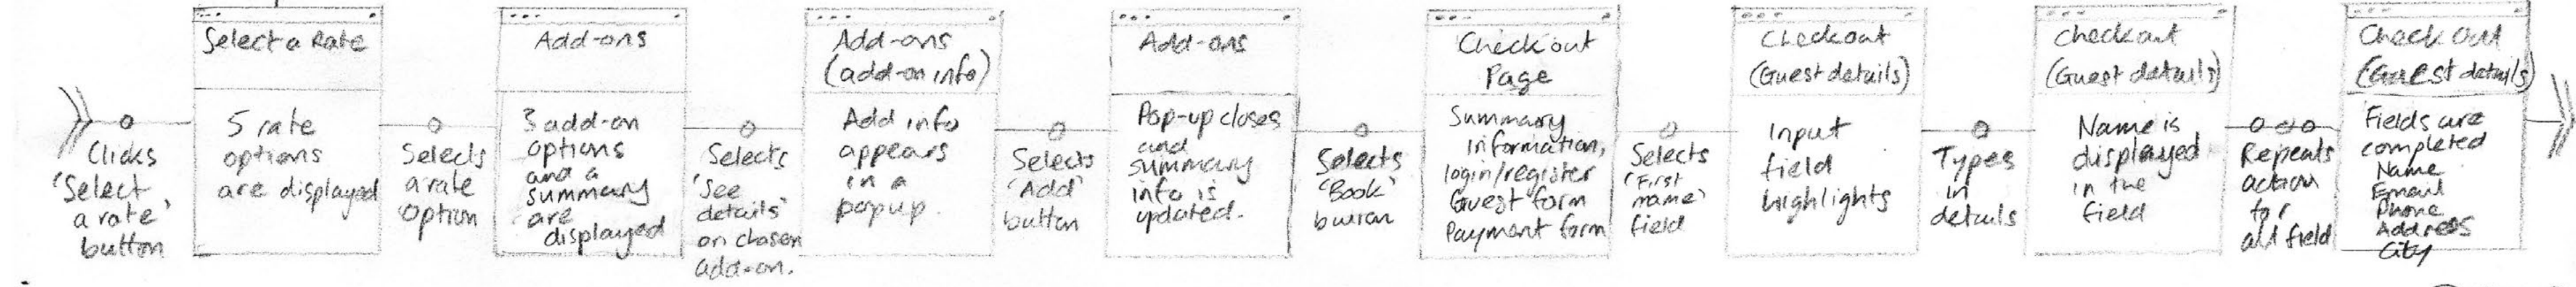 Clicks
'Select
a rate'
button
Select a Rate
5 rate
options
are displayed
Selects
a rate
option
Add-ons
3 add-on
options
and a
summary
are
displayed
Selects
'See
details'
on chosen
add-on.
Add-ons
(add-on info)
Add info
appears
in a
popup.
Selects
'Add'
button
Add-ons
Pop-up closes
and
summary
info is
updated.
Selects
'Book'
button
Check out
Page
Summary
information,
login/register
Guest form
Payment form
Selects
'First
name'
field
Checkout
(Guest details)
Input
field
highlights
Types
in
details
Checkout
(Guest details)
Name is
displayed
in the
field
Repeats
action
for
all field
Check Out
(Guest details)
Fields are
completed
Name
Email
Phone
Address
City